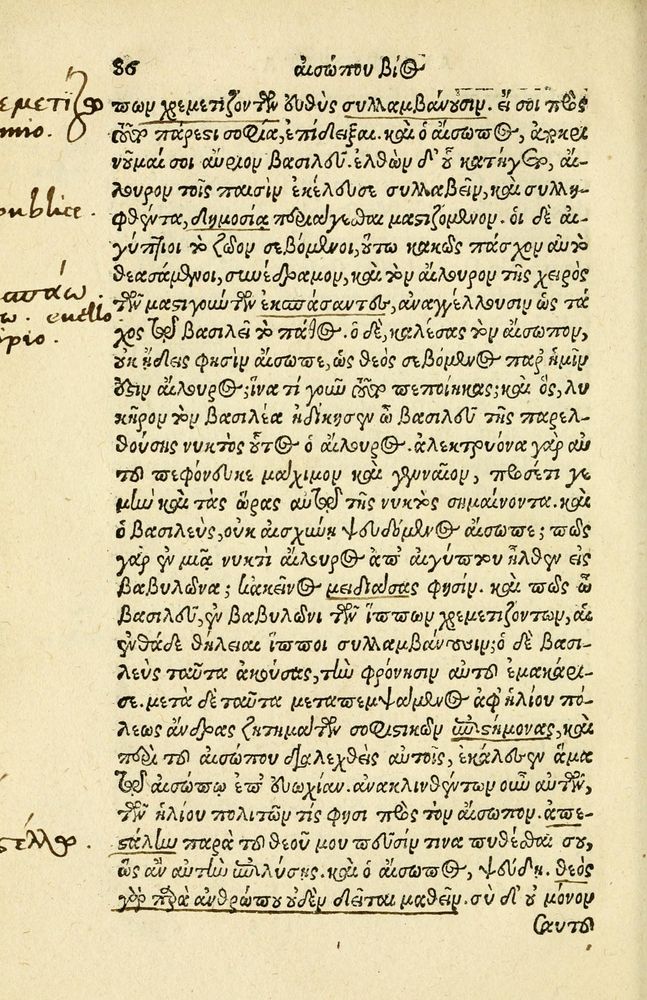 86 αἰσώπου βίος
πων χρεμετιζόντων εὐθὺς συλλαμβάνουσιν. εἴ σοι πρὸς
τοῦτο πάρεστι σοφία, ἐπίδειξαι. καὶ ὁ αἴσωπος, ἀποκρι
νοῦμαί σοι αὔριον βασιλεῦ. ἐλθὼν δ' οὗ κατήγετο, αἴ-
λουρον τοῖς παισὶν ἐκέλευσε συλλαβεῖν, καὶ συλλη-
φθέντα, δημοσίᾳ περιάγεσθαι μαστιζόμενον. οἱ δὲ αἰ-
γύπτιοι τὸ ζῶον σεβόμενοι, οὕτω κακῶς πάσχον αὐτὸ
θεασάμενοι, συνέδραμον, καὶ τὸν αἴλουρον τῆς χειρὸς
τῶν μαστιγούντων ἐκσπάσαντες, ἀναγγέλλουσιν ὡς τά
χος τῷ βασιλεῖ τὸ πάθος. ὁ δὲ, καλέσας τὸν αἴσωπον,
οὐκ ᾔδεις φησὶν αἴσωπε, ὡς θεὸς σεβόμενος παρ' ἡμῖν
ἐστιν αἴλουρος; ἵνα τί γοῦν τοῦτο πεποίηκας; καὶ ὃς, λυ
κῆρον τὸν βασιλέα ἠδίκησεν ὦ βασιλεῦ τῆς παρελ-
θούσης νυκτὸς οὗτος ὁ αἴλουρος. ἀλεκτρυόνα γὰρ αὐ
τοῦ πεφόνευκε μάχιμον καὶ γενναῖον, προσέτι γε
μὴν καὶ τὰς ὥρας αὐτῷ τῆς νυκτὸς σημαίνοντα. καὶ
ὁ βασιλεὺς, οὐκ αἰσχύνῃ ψευδόμενος αἴσωπε; πῶς
γὰρ ἐν μιᾷ νυκτὶ αἴλουρος ἀπ' αἰγύπτου ἦλθεν εἰς
βαβυλῶνα; κἀκεῖνος μειδιάσας φησίν. καὶ πῶς ὦ
βασιλεῦ, ἐν βαβυλῶνι τῶν ἵππων χρεμετιζόντων, αἱ
ἐνθάδε θήλειαι ἵπποι συλλαμβάνουσιν; ὁ δὲ βασι-
λεὺς ταῦτα ἀκούσας, τὴν φρόνησιν αὐτοῦ ἐμακάρι-
σε. μετὰ δὲ ταῦτα μεταπεμψάμενος ἀφ' ἡλίου πό-
λεως ἄνδρας ζητημάτων σοφιστικῶν ἐπιστήμονας, καὶ
περὶ τοῦ αἰσώπου διαλεχθεὶς αὐτοῖς, ἐκάλεσεν ἅμα
τῷ αἰσώπῳ ἐπ' εὐωχίαν. ἀνακλιθέντων οὖν αὐτῶν,
τῶν ἡλίου πολιτῶν τίς φησι πρὸς τὸν αἴσωπον. ἀπε-
στάλην παρὰ τοῦ θεοῦ μου πεῦσίν τινα πυθέσθαι σου,
ὡς ἂν αὐτὴν ἐπιλύσῃς. καὶ ὁ αἴσωπος, ψεύδῃ. θεὸς
γὰρ παρὰ ἀνθρώπου οὐδὲν δεῖται μαθεῖν. σὺ δ' οὐ μόνον
σαυτοῦ
εμετιζω
nnio.
publice.
σπάω.
ω. evello
ripio.
στέλλω.